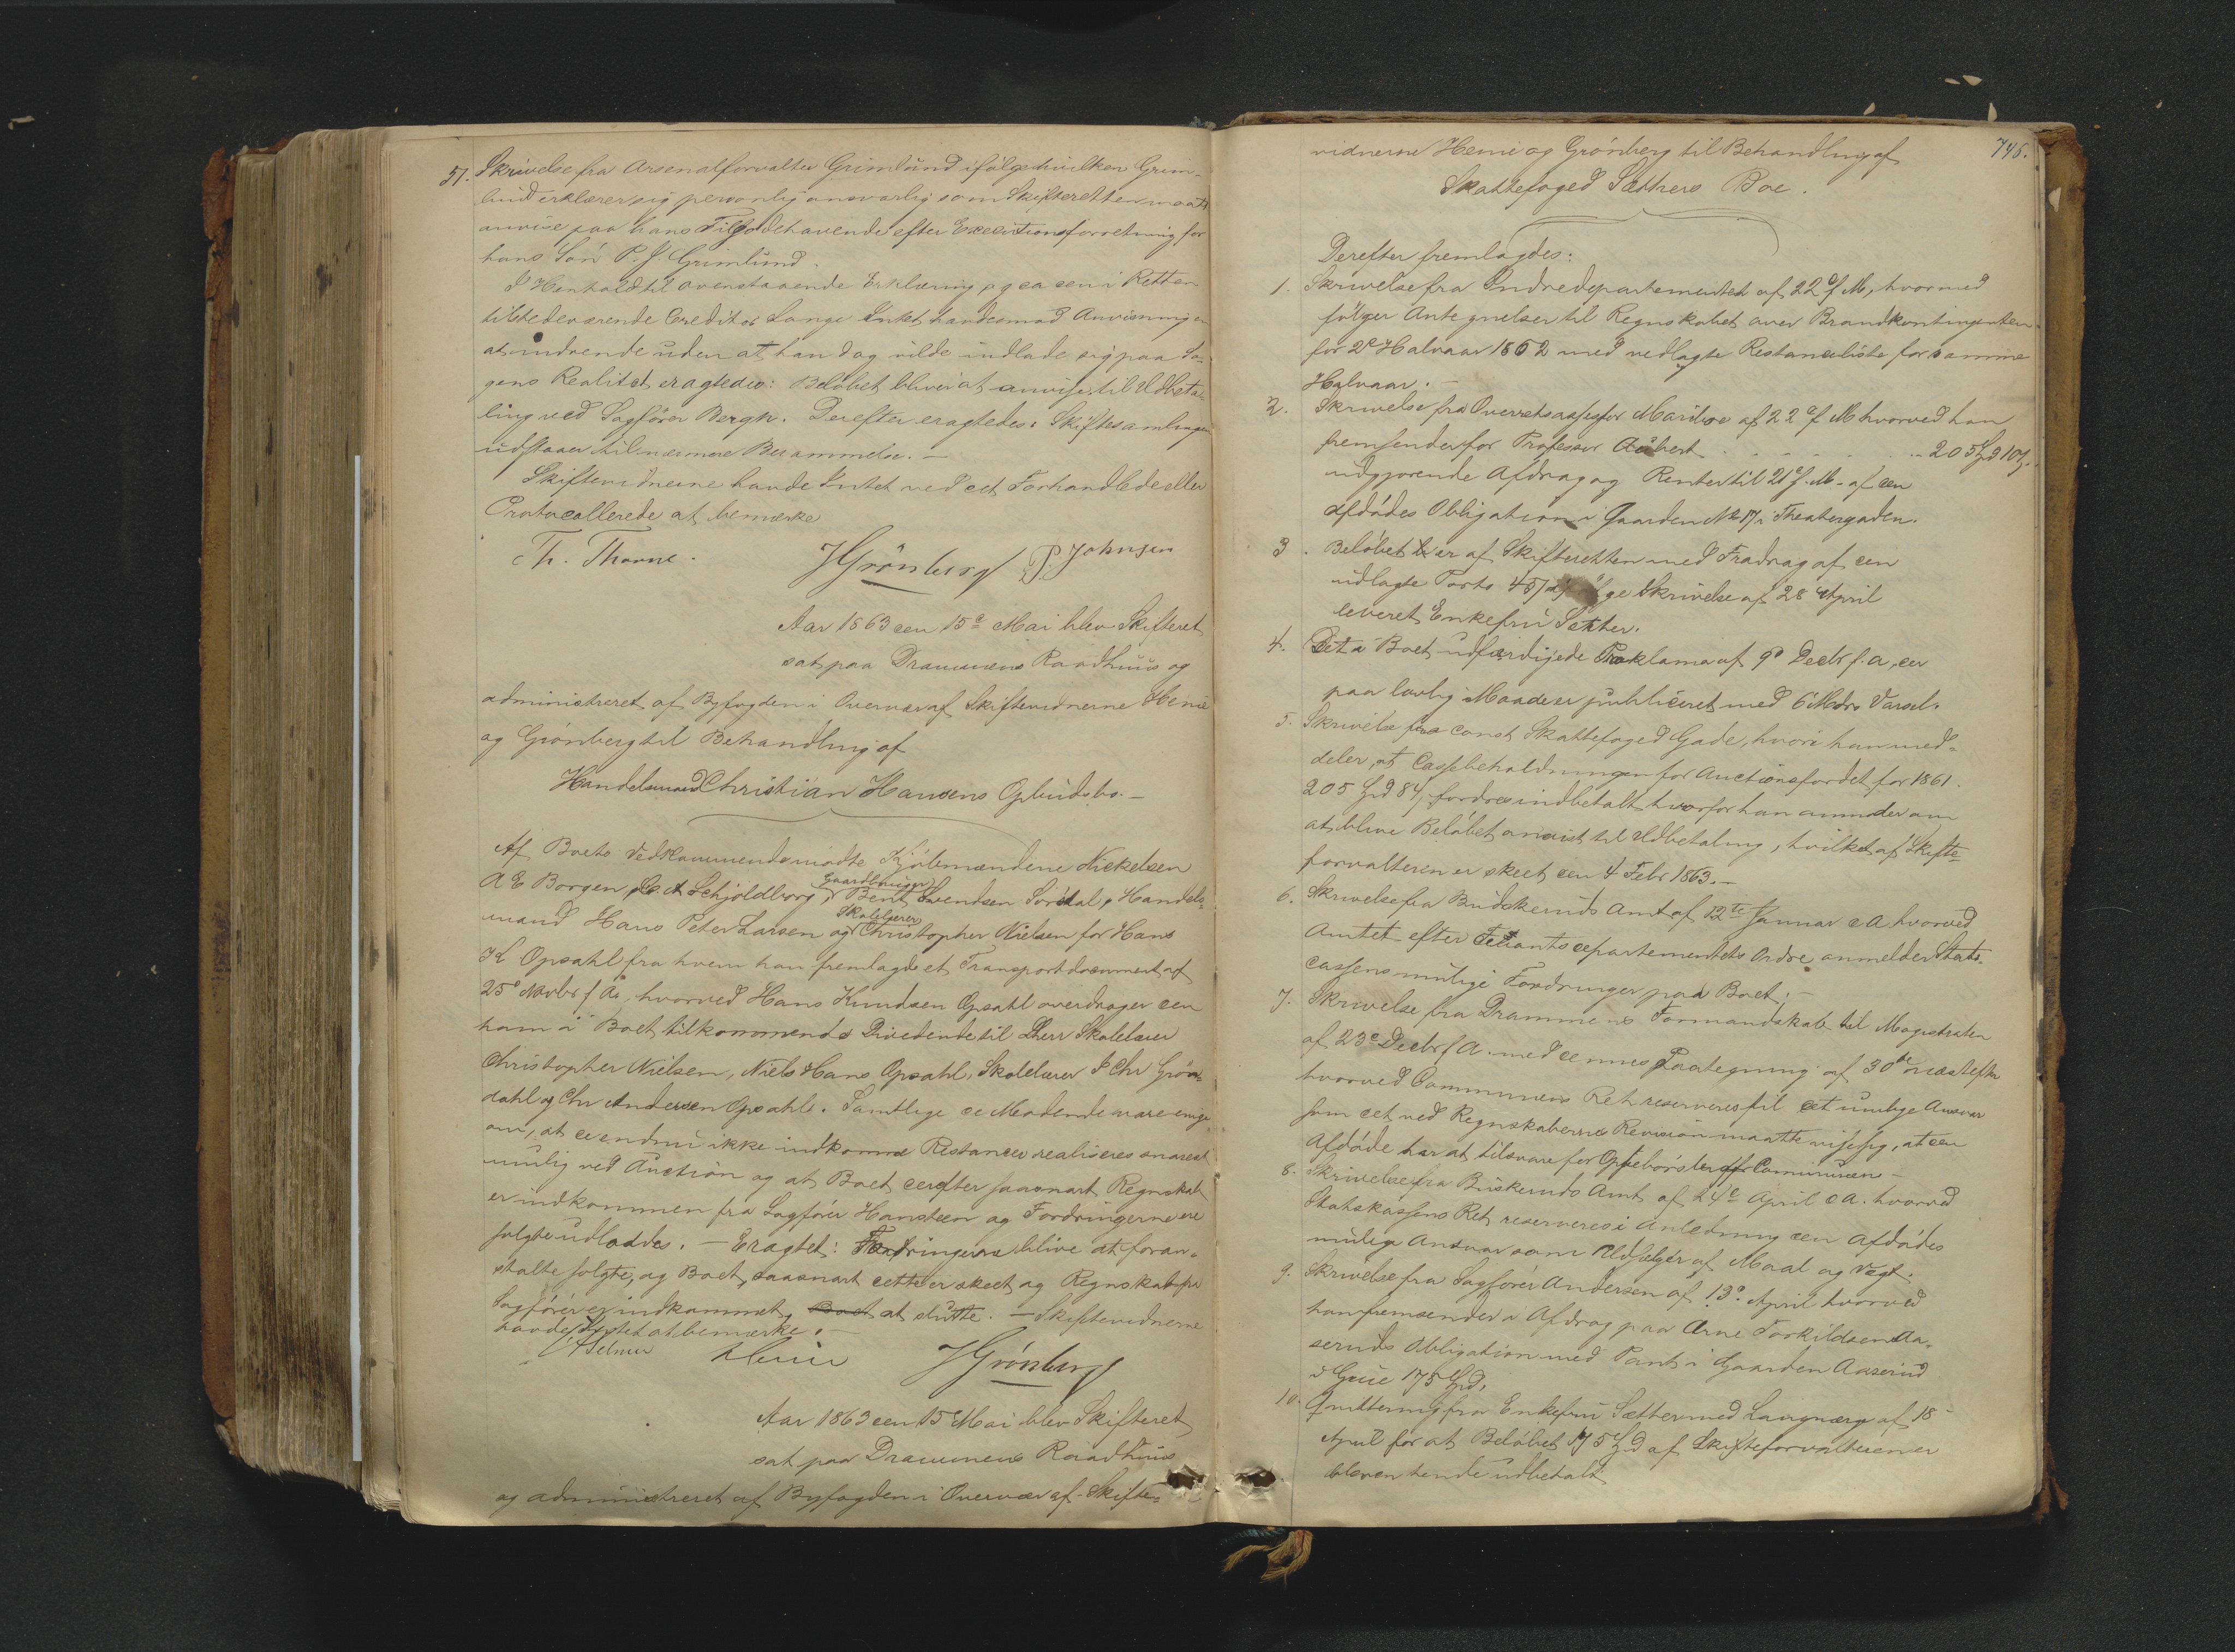 51. Skrivelse fra Arsenalforvalter Grimlund ifølge hvilken Grim-
lund erklærer sig personlig ansvarlig som Skifteretten maatte
anvise paa hans Tilgodehavende efter Executionsforretning for
hans Søn P. J. Grimlund.
I Henhold til ovenstaaende Erklæring og da den i Retten
tilstedeværende Creditor Lange Intet havde mod Anvisningen
at indvende uden at han dog vilde indlade sig paa Sa-
gens Realitet eragtedes: Beløbet bliver at anvise til Udbeta-
ling ved Sagfører Bergh. Derefter eragtedes: Skiftesamlingen
udstaaer til nærmere Berammelse. -
Skiftevidnerne havde Intet ved det Forhandlede eller
Protocollerede at bemærke
Th. Thorne. JGrönberg P. Johnsen
Aar 1863 den 15de Mai blev Skifteret
sat paa Drammens Raadhuus og
administreret af Byfogden i Overvær af Skiftevidnerne Henie
og Grönberg til Behandling af
Handelsmand Christian Hansens Opbudsbo. -
Af Boets Vedkommende mødte Kjøbmændene Nickelsen
A E Borgen, C A Schjoldborg, Gaardbruger Bent Svendsen Sørdal, Handels-
mand Hans Peter Larsen og Skolelærer Christopher Nielsen for Hans
K Opsahl fra hvem han fremlagde et Transportdocument af
25de Novbr f A, hvorved Hans Knudsen Opsahl overdrager den
ham i Boet tilkommende Dividende til Herr Skolelærer
Christopher Nielsen, Niels Hans Opsahl, Skolelærer P Chr Grön-
dahl og Chr Andersen Opsahl. Samtlige de Mødende vare enige
om, at de endnu ikke indkomne Restancer realiseres snarest
mulig ved Auction og at Boet derefter saasnart Regnskab
er indkommen fra Sagfører Hansteen og Fordringerne ere
solgte udloddes. - Eragtet: Fordringerne blive at foran-
stalte solgte, og Boet, saasnart dette er skeet og Regnskab fra
Sagfører er indkommet, Boet at slutte. - Skiftevidnerne
havde Intet at bemærke. -
Henie JGrönberg
Aar 1863 den 15 Mai blev Skifteret
sat paa Drammens Raadhuus
og administreret af Byfogden i Overvær af Skifte-
vidnerne Henie og Grönberg til Behandling af
Skattefoged Sæthers Boe.
Derefter fremlagdes:
1. Skrivelse fra Indredepartementet af 22de f M, hvormed
følger Antegnelser til Regnskabet over Brandkontingenten
for 2de Halvaar 1862 med vedlagte Restanceliste for samme
Halvaar. -
2. Skrivelse fra Overretsassessor Mariboe af 22de f M hvorved han
fremsender for Professor Aubert . . . . . 205 Spd 10 s.
udgjørende Afdrag og Renter til 21de f. M. af den
Afdødes Obligation i Gaarden No 17 i Theatergaden.
3. Beløbet er af Skifteretten med Fradrag af den
udlagte Porto ifølge Skrivelse af 28 April
leveret Enkefru Sæther.
4. Det i Boet udfærdigede Proklama af 9de Decbr f. a, er
paa lovlig Maade er publiceret med 6 Mdrs Varsel.
5. Skrivelse fra const Skattefoged Gade, hvori han med-
deler, at Cassebeholdningen for Auctionsfondet for 1861.
205 Spd 84 s, fordres indbetalt hvorfor han anmoder om
at blive Beløbet anvist til Udbetaling, hvilket af Skifte-
forvalteren er skeet den 4 Febr 1863. -
6. Skrivelse fra Buskeruds Amt af 12te Januar d A hvorved
Amtet efter Finantsdepartementets Ordre anmelder Stats-
cassens mulige Fordringer paa Boet. -
7. Skrivelse fra Drammens Formandskab til Magistraten
af 23de Decbr f A. med dennes Paategning af 30te næstefter
hvorved Communens Ret reserveres til det mulige Ansvar
som det ved Regnskabernes Revision maatte vise sig, at den
Afdøde har at tilsvare for Opbebørsler for Communen -
8. Skrivelse fra Buskeruds Amt af 24de April d A. hvorved
Statskassens Ret reserveres i Anledning den Afdødes
mulige Ansvar som Udsælger af Maal og Vægt.
9. Skrivelse fra Sagfører Andersen af 13de April hvorved
han fremsender i Afdrag paa Arne Torkildsen Aa-
seruds Obligation med Pant i Gaarden Aaserud
i Grue 175 Spd.
10. Quittering fra Enkefru Sæther med Laugværge af 18
April for at Beløbet 175 Spd af Skifteforvalteren er
bleven hende udbetalt